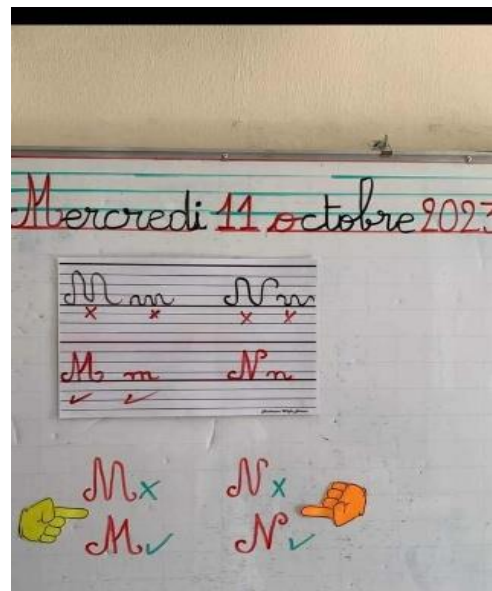 Mercredi 11 octobre 2023
M m N n
x x x x
M m N n
✓ ✓
M x N x
M ✓ N ✓